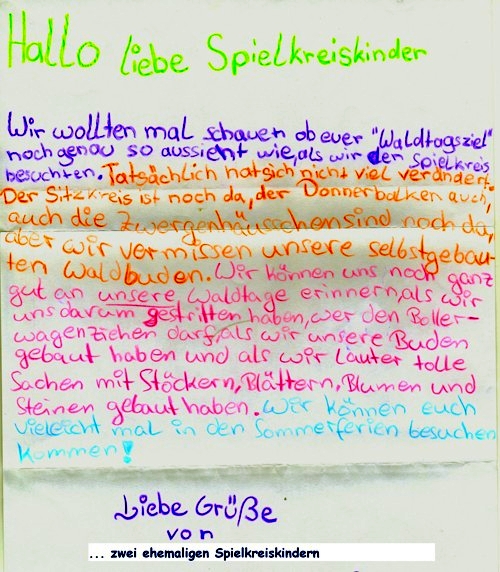 Hallo liebe Spielkreiskinder
Wir wollten mal schauen ob euer "Waldtagsziel"
noch genau so aussieht wie, als wir den Spielkreis
besuchten. Tatsächlich hat sich nicht viel verändert.
Der Sitzkreis ist noch da, der Donnerbalken auch,
auch die Zwergenhäusschen sind noch da,
aber wir vermissen unsere selbstgebau-
ten Waldbuden. Wir können uns noch ganz
gut an unsere Waldtage erinnern, als wir
uns darum gestritten haben, wer den Boller-
wagen ziehen darf, als wir unsere Buden
gebaut haben und als wir läuter tolle
Sachen mit Stöckern, Blättern, Blumen und
Steinen gebaut haben. Wir können euch
vieleicht mal in den Sommerferien besuchen
kommen!
Liebe Grüße
von
... zwei ehemaligen Spielkreiskindern